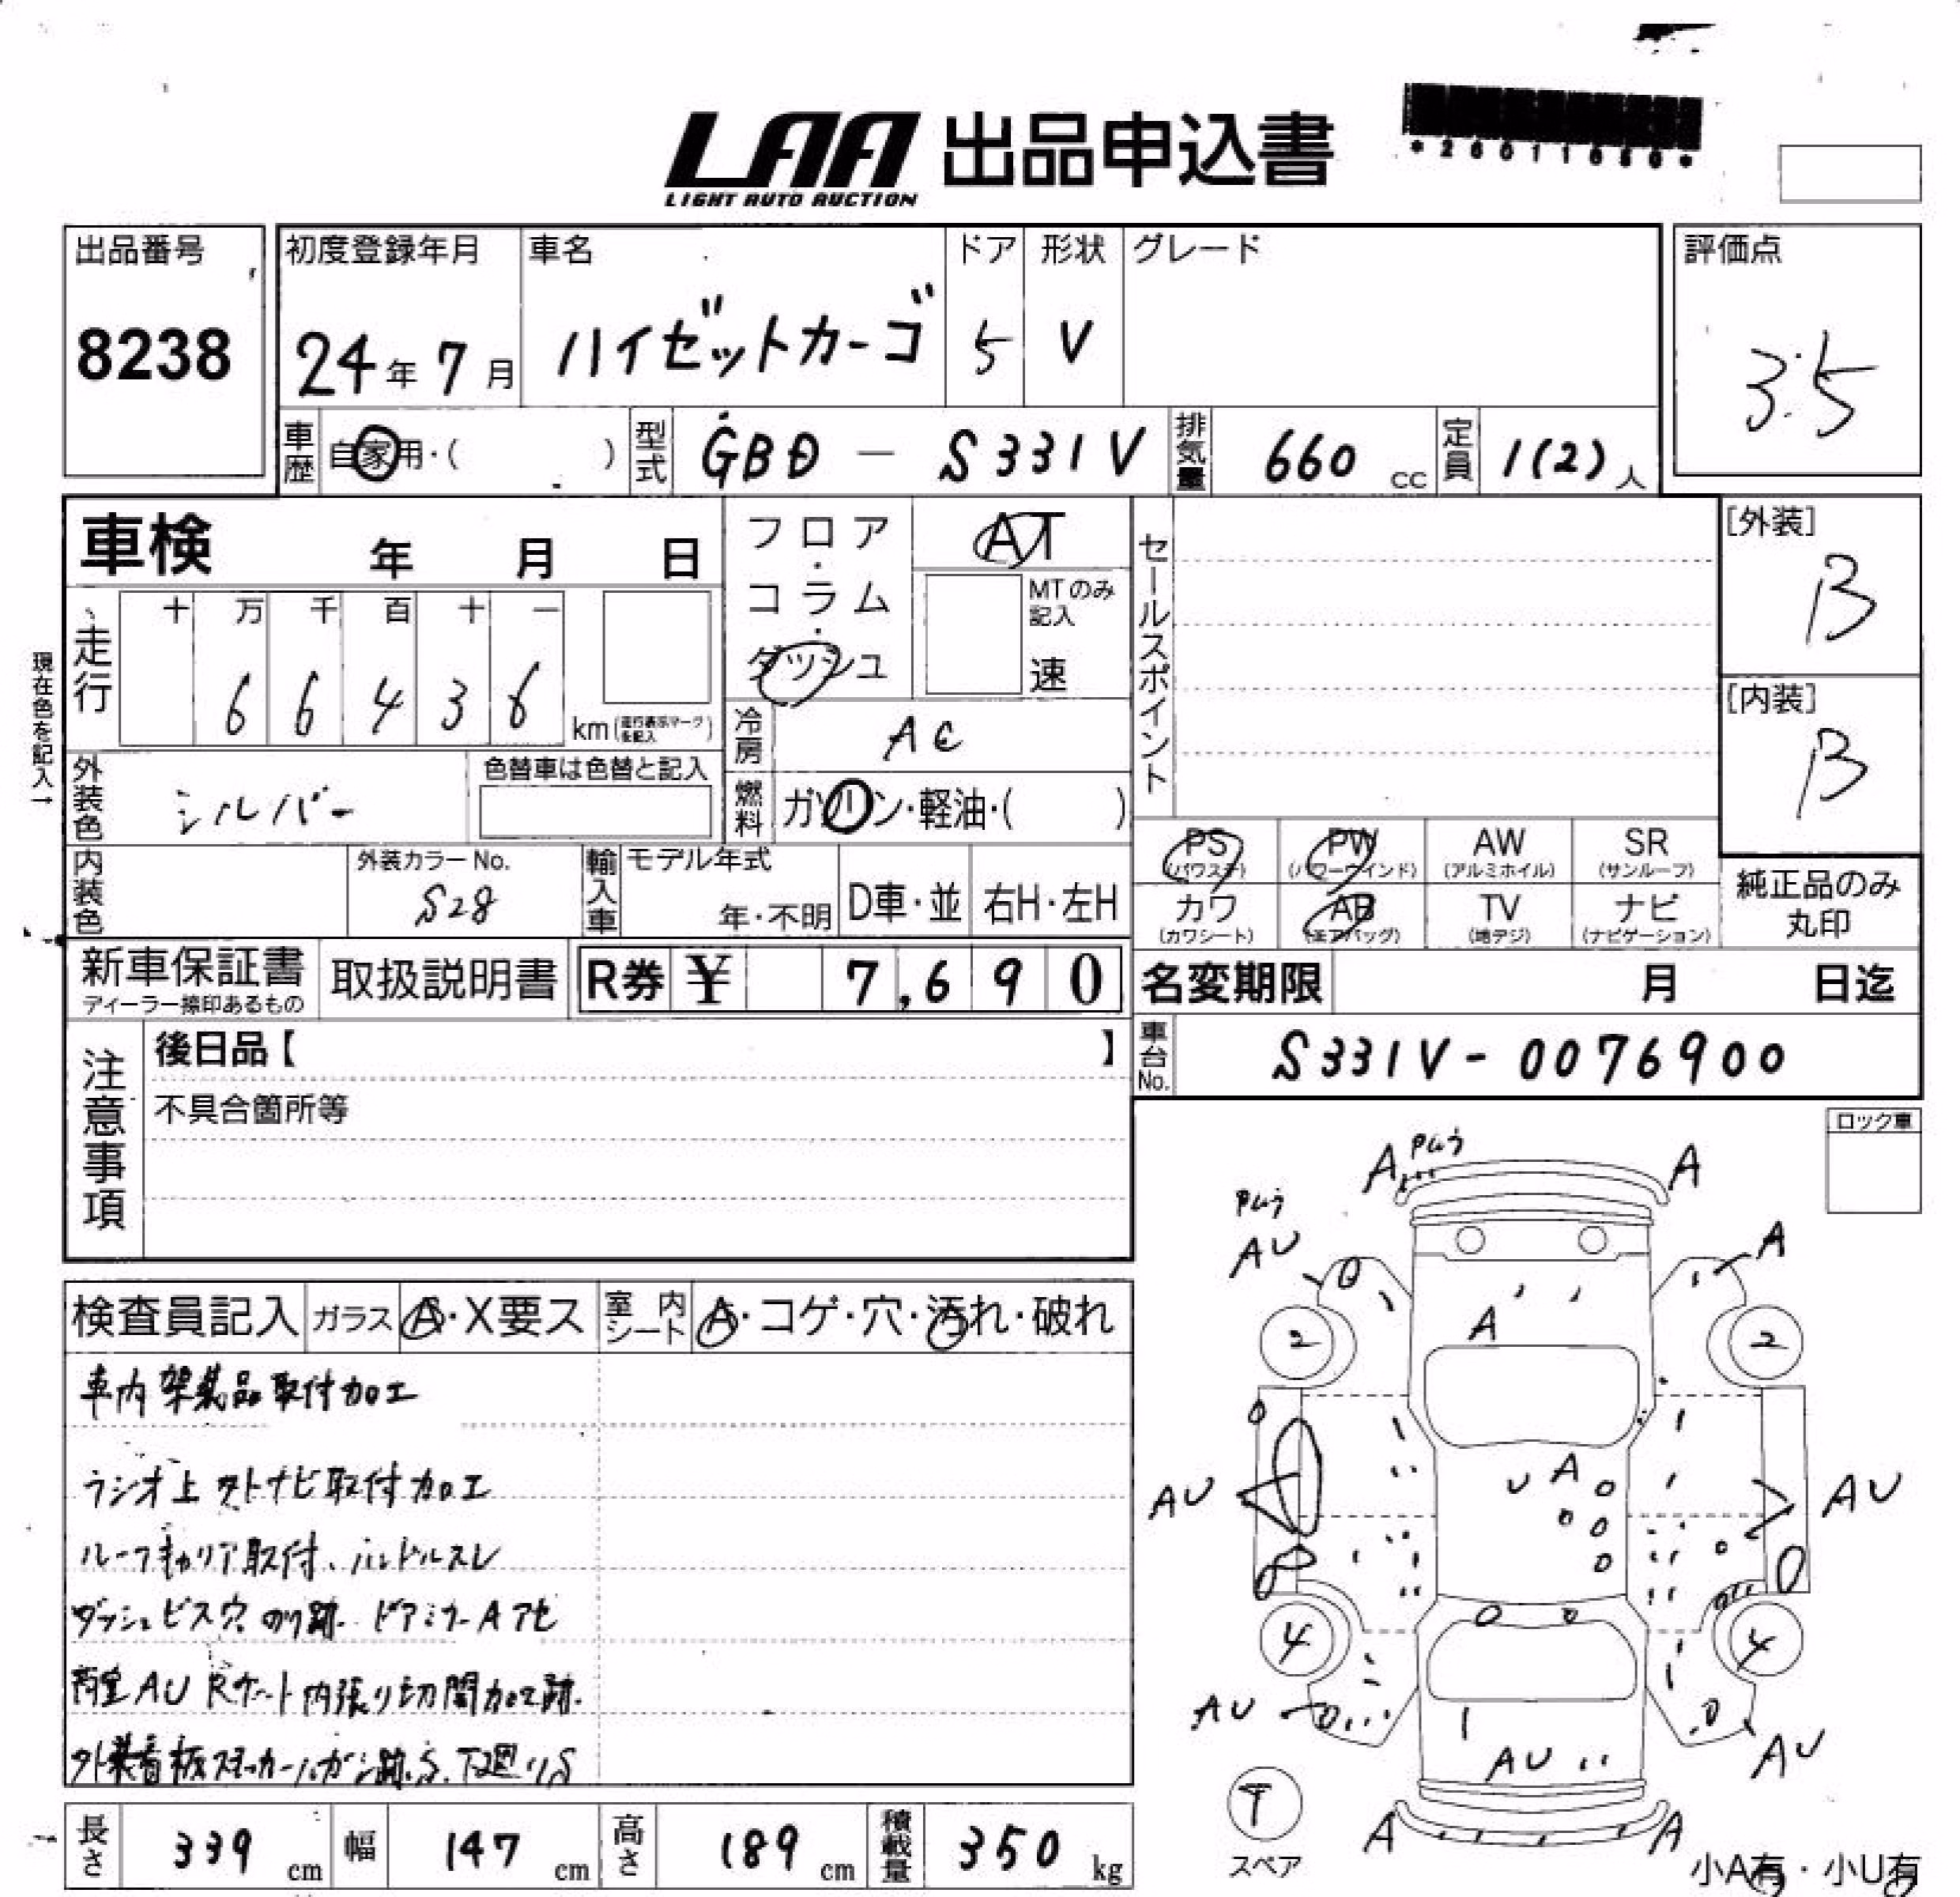 LAA 出品申込書
LIGHT AUTO AUCTION
出品番号
8238
初度登録年月
24年 7月
車名
ハイゼットカーゴ
ドア
5
形状
V
グレード
評価点
3.5
車歴 自家用・( )
型式 GBD - S331V
排気量 660 cc
定員 1(2) 人
車検 年 月 日
フロア・コラム・ダッシュ
AT
MTのみ記入
速
セールスポイント
[外装]
B
[内装]
B
現在色を記入→
走行
十 万 千 百 十 一
6 6 4 3 6 km(走行表示マークを記入)
冷房 AC
外装色 シルバー
色替車は色替と記入
燃料 ガソリン・軽油・( )
PS (パワステ)
PW (パワーウインド)
AW (アルミホイル)
SR (サンルーフ)
カワ (カワシート)
AB (エアバッグ)
TV (地デジ)
ナビ (ナビゲーション)
純正品のみ丸印
内装色
外装カラーNo.
S28
輸入車
モデル年式
年・不明
D車・並
右H・左H
新車保証書
ディーラー捺印あるもの
取扱説明書
R券 ¥ 7,690
名変期限 月 日迄
車台No. S331V-0076900
注意事項
後日品【 】
不具合箇所等
ロック車
検査員記入
ガラス A・X要ス
室内シート A・コゲ・穴・汚れ・破れ
車内架装品取付加工
ラジオ上 外ナビ取付加工
ルーフキャリア取付、ハンドルスレ
ダッシュビス穴 のり跡 ドアミラーA アセ
荷室AU Rゲート内張り切開加工跡
外装看板ステッカーハガシ跡、S、下廻りS
A
A
AU
A
2
A
2
AU
A
AU
4
4
AU
AU
AU
A
A
T
スペア
小A有・小U有
長さ 339 cm
幅 147 cm
高さ 189 cm
積載量 350 kg